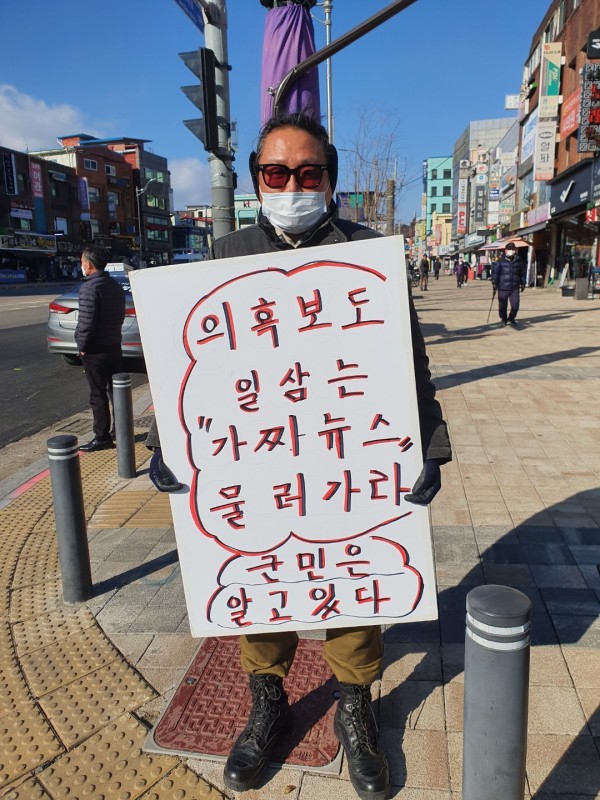 의혹보도
일삼는
"가짜뉴스"
물러가다
군민은
알고있다